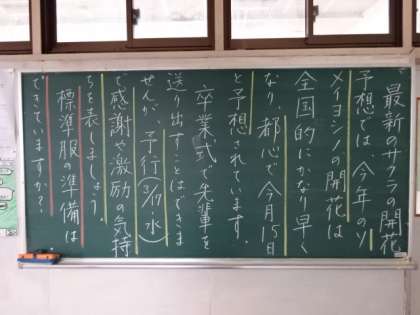 最新のサクラの開花
予想では、今年のソ
メイヨシノの開花は
全国的にかなり早く
なり、都心で今月15日
と予想されています。
卒業式で先輩を
送り出すことはできま
せんが、予行(3/17・水)
で感謝や激励の気持
ちを表しましょう。
標準服の準備は
できていますか?